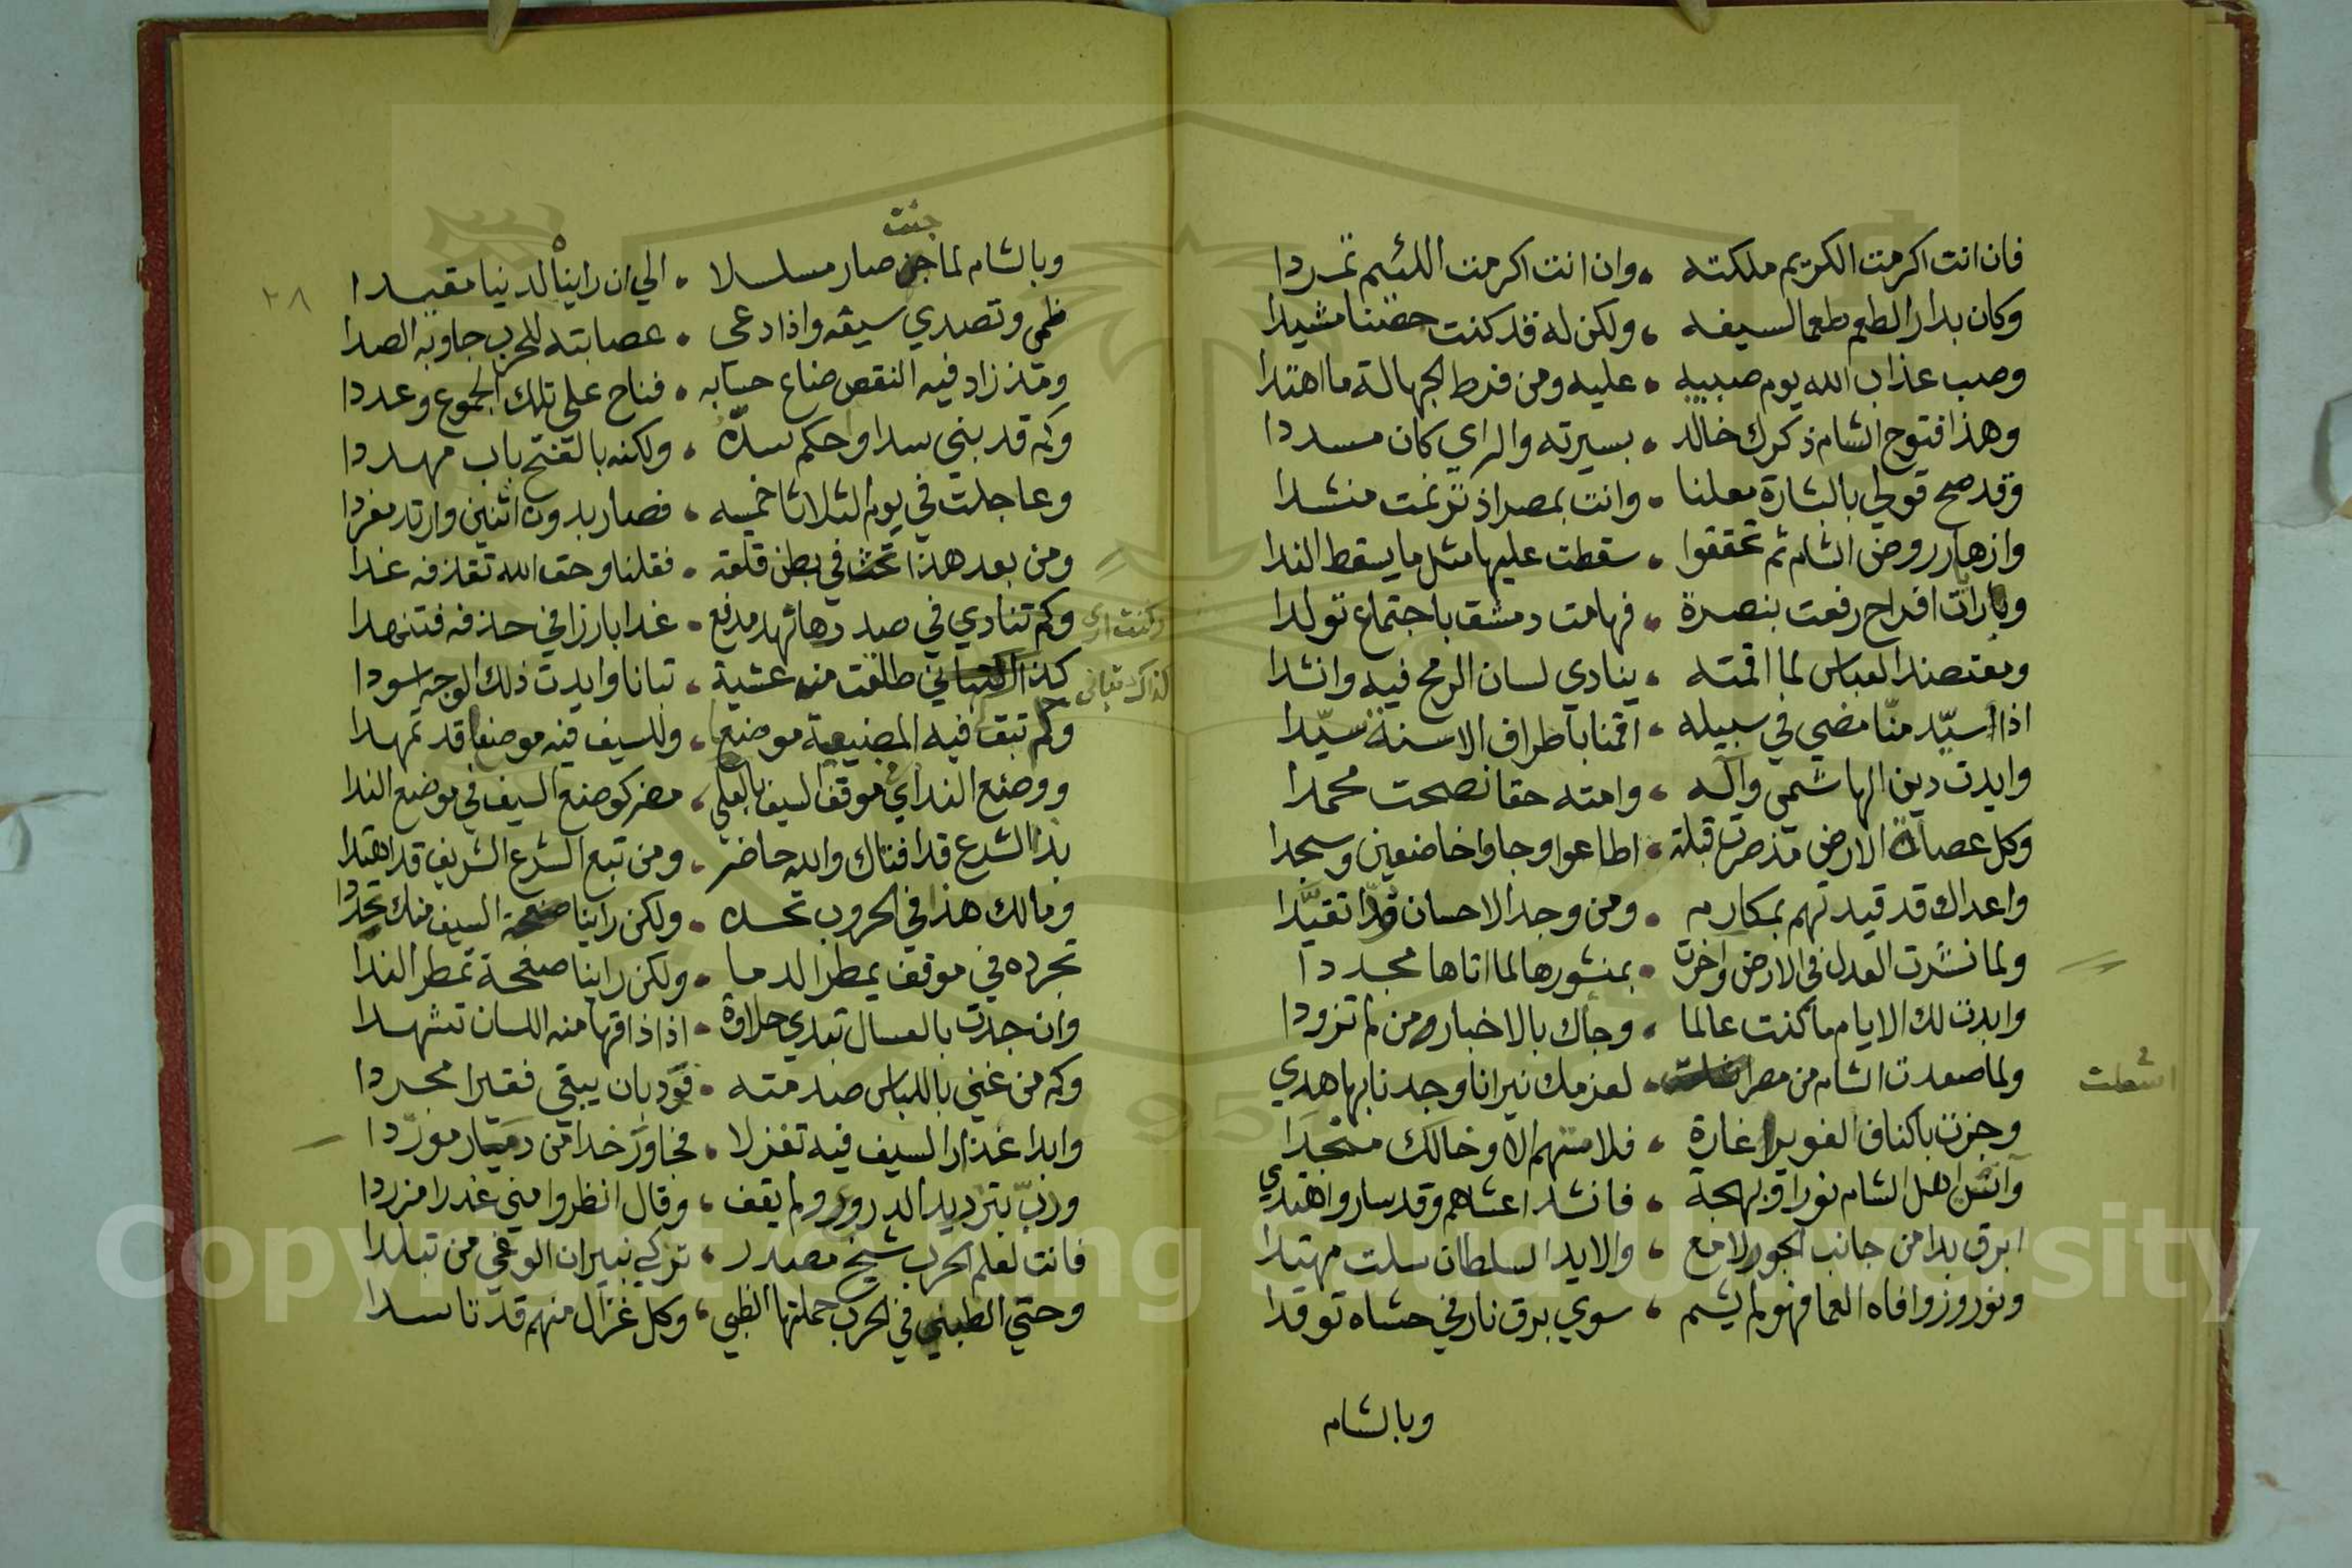 فان انت اكرمت الكريم ملكته ، وان انت اكرمت اللئيم تمردا
وكان بدار الطعم طعما لسيفه ، ولكن له قد كنت حصنا مشيدا
وصب عذاب الله يوم صبيبه ، عليه ومن فرط الجهالة ما اهتدا
وهذا فتوح الشام ذكرك خالد ، بسيرته والراي كان مسددا
وقد صح قولي بالشارة معلنا ، وانت بمصر اذ ترنمت منشدا
وازهار روض الشام ثم تحققوا ، سقطت عليها مثل ما يسقط الندا
ورايات افراح رفعت بنصرة ، فهامت دمشق باجتماع تولدا
ومعتضد العباس لما اقمته ، ينادي لسان الرمح فيه وانشدا
اذا سيّد منّا مضي في سبيله ، اقمنا باطراف الاسنة سيّدا
وايدت دين الهاشمي وآله ، وامته حقا نصحت محمدا
وكل عصاة الارض مذ صرت قبلة ، اطاعوا وجاوا خاضعين وسجدا
واعداك قد قيدتهم بمكارم ، ومن وجد الاحسان قيدا تقيّدا
ولما نشرت العدل في الارض واخرت ، بمنشورها لما اتاها مجددا
وابدت لك الايام ما كنت عالما ، وجاك بالاخبار من لم تزودا
ولما صعدت الشام من مصر ، لعزمك نيرانا وجدنا بها هدي
اشعلت
وجزت باكناف الغوير اغارة ، فلا منهم الا وخالك منجدا
وآنس اهل الشام نورا وبهجة ، فانشد اعشاهم وقد سار واهتدي
ابرق بدا من جانب الجور لامع ، والا يد السلطان سلت مهندا
ونوروز وافاه العما فهو لم يشم ، سوي برق نار في حشاه توقدا
وبالشام
٢٨
جننت
وبالشام لما جن صار مسلسلا ، الي ان راينا لدنيا مقيدا
ظمي وتصدي سيفه واذا دعي ، عصابته للحرب جاوبه الصدا
ومذ زاد فيه النقص ضاع حسابه ، فناح علي تلك الجموع وعددا
وكم قد بني سدا واحكم سدّه ، ولكنه بالفتح باب مهددا
وعاجلت في يوم الثلاثا خميسه ، فصار بدون اثنين وارتد مفردا
ومن بعد هذا تحث في بطن قلعة ، فقلنا وحق الله تقذفه غدا
وكم تنادي في صدرها ثم مدفع ، غدا بارزا في حذفه فتنهدا
وكنت اري
كذاك طلعت منه عشية ، تبانا وايدت ذلك الوجه اسودا
لذاك تباني
وكم تبق فيه المصنيعة موضعا ، وللسيف فيه موضعا قد تمهدا
ووضع الندا في موقف السيف بالعلي ، مضر كوضع السيف في موضع الندا
بذا الشرع قد افتاك والله حاضر ، ومن تبع الشرع الشريف قد اهتدا
ومالك هذا في الحروب تحده ، ولكن راينا صفحة السيف منك تجردا
تجرده في موقف يمطر الدما ، ولكن راينا صفحة تمطر الندا
وان جدت بالعسال تبدي حلاوة ، اذا ذاقها منه اللسان تشهدا
وكم من غني باللباس صدمته ، فود بان يبقي فقيرا مجردا
وابدا عذار السيف فيه تغزلا ، فجاوز خدا من دم صار مورّدا
وربّ بترديد الدرور ولم يقف ، وقال انظروا مني غدرا مزردا
فانت لعلم الحرب شيخ مصدر ، تزكي بنيران الوغي من تبلدا
وحتي الظبي في الحرب حملتها الظبي ، وكل غزال منهم قد تاسدا
Copyright © King Saud University
1957